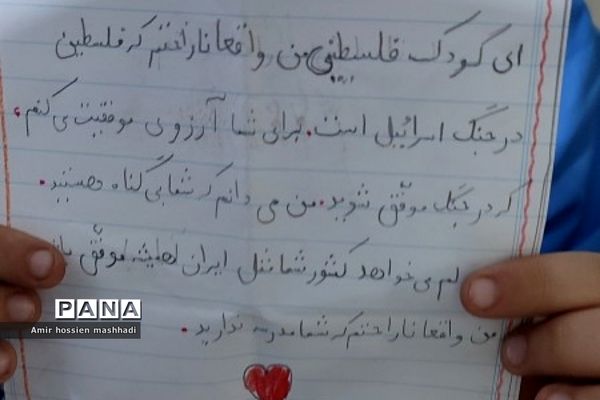 ای کودک فلسطینی من واقعا ناراحتم که فلسطین
در جنگ اسرائیل است. برای شما آرزوی موفقیت می کنم،
که در جنگ موفّق شوید. من می دانم که شما بی گناه هستید.
دلم می خواهد کشور شما مثل ایران همیشه موفّق
من واقعا ناراحتم که شما مدرسه ندارید.
PANA
Amir hossien mashhadi